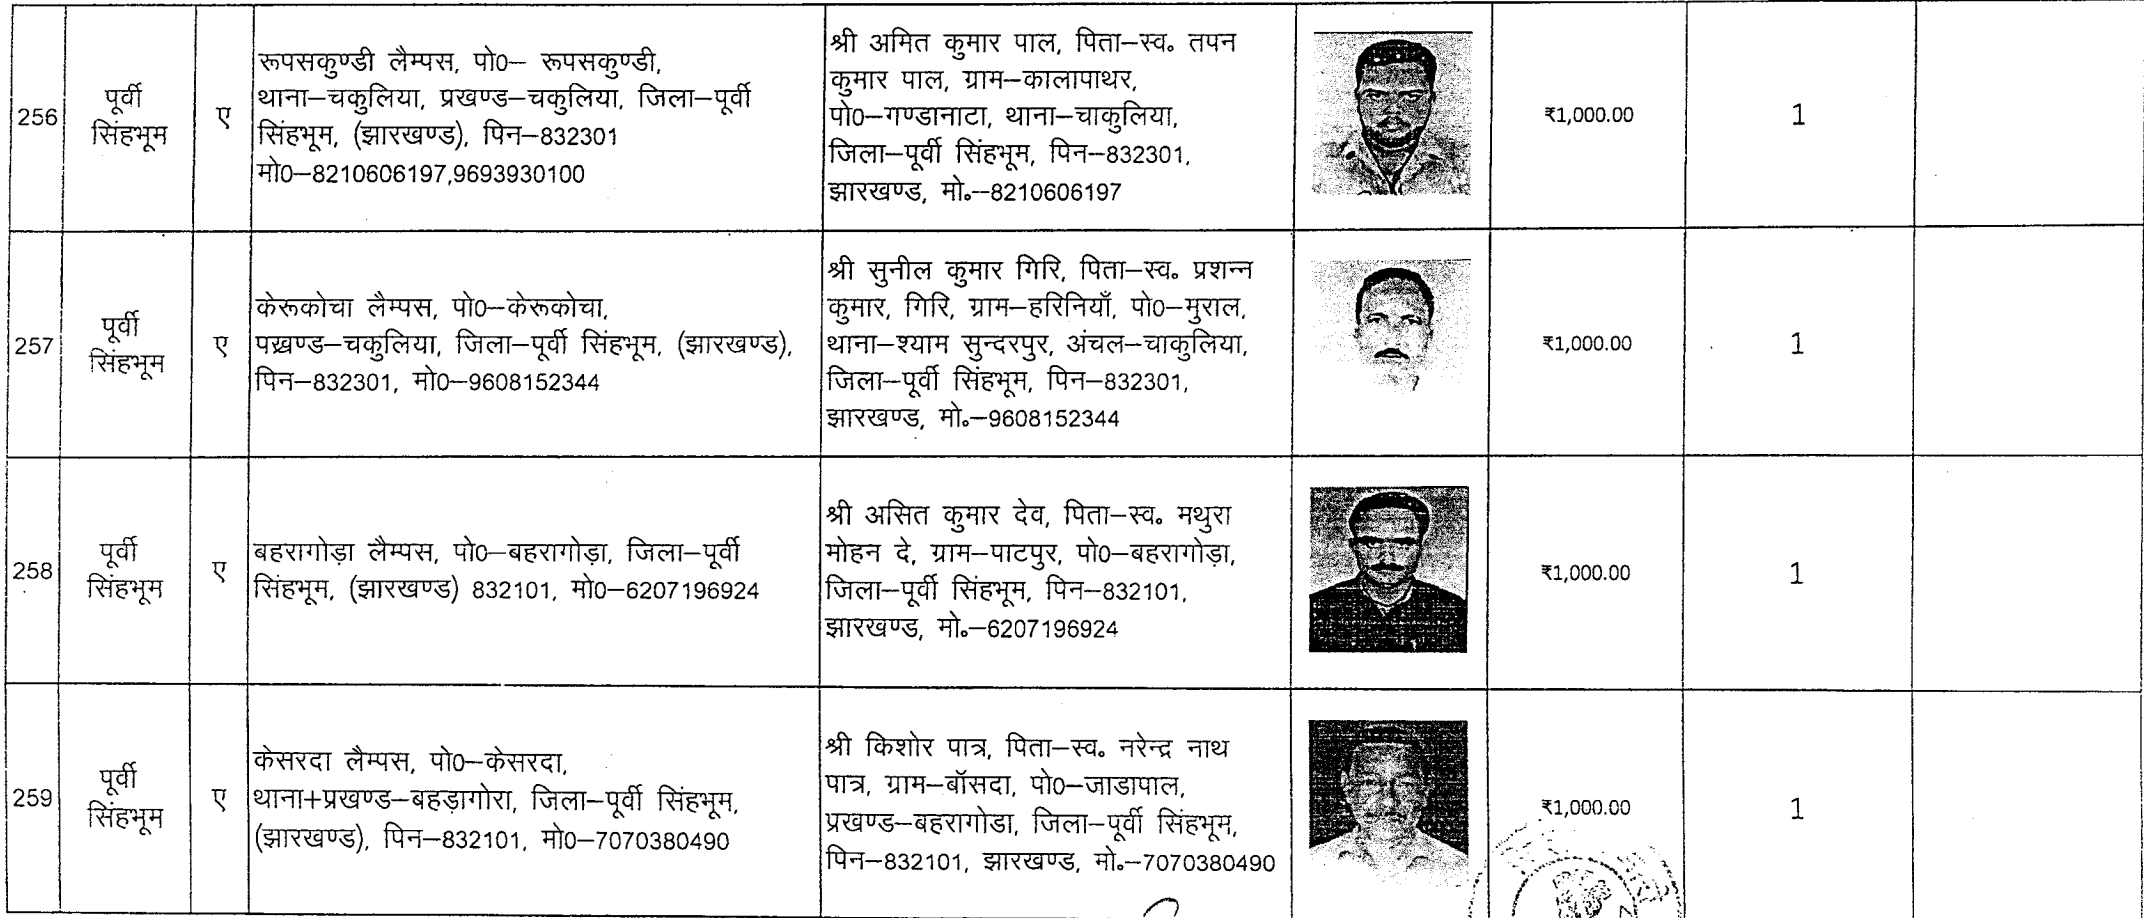 256
पूर्वी
सिंहभूम
ए
रूपसकुण्डी लैम्पस, पो0– रूपसकुण्डी,
थाना–चकुलिया, प्रखण्ड–चकुलिया, जिला–पूर्वी
सिंहभूम, (झारखण्ड), पिन–832301
मो0–8210606197,9693930100
श्री अमित कुमार पाल, पिता–स्व० तपन
कुमार पाल, ग्राम–कालापाथर,
पो0–गण्डानाटा, थाना–चाकुलिया,
जिला–पूर्वी सिंहभूम, पिन–832301,
झारखण्ड, मो०--8210606197
₹1,000.00
1
257
पूर्वी
सिंहभूम
ए
केरूकोचा लैम्पस, पो0–केरूकोचा,
पख्रण्ड–चकुलिया, जिला–पूर्वी सिंहभूम, (झारखण्ड),
पिन–832301, मो0–9608152344
श्री सुनील कुमार गिरि, पिता–स्व० प्रशन्न
कुमार, गिरि, ग्राम–हरिनियाँ, पो0–मुराल,
थाना–श्याम सुन्दरपुर, अंचल–चाकुलिया,
जिला–पूर्वी सिंहभूम, पिन–832301,
झारखण्ड, मो०–9608152344
₹1,000.00
1
258
पूर्वी
सिंहभूम
ए
बहरागोड़ा लैम्पस, पो0–बहरागोड़ा, जिला–पूर्वी
सिंहभूम, (झारखण्ड) 832101, मो0–6207196924
श्री असित कुमार देव, पिता–स्व० मथुरा
मोहन दे, ग्राम–पाटपुर, पो0–बहरागोड़ा,
जिला–पूर्वी सिंहभूम, पिन–832101,
झारखण्ड, मो०–6207196924
₹1,000.00
1
259
पूर्वी
सिंहभूम
ए
केसरदा लैम्पस, पो0–केसरदा,
थाना+प्रखण्ड–बहड़ागोरा, जिला–पूर्वी सिंहभूम,
(झारखण्ड), पिन–832101, मो0–7070380490
श्री किशोर पात्र, पिता–स्व० नरेन्द्र नाथ
पात्र, ग्राम–बॉसदा, पो0–जाडापाल,
प्रखण्ड–बहरागोडा, जिला–पूर्वी सिंहभूम,
पिन–832101, झारखण्ड, मो०–7070380490
₹1,000.00
1